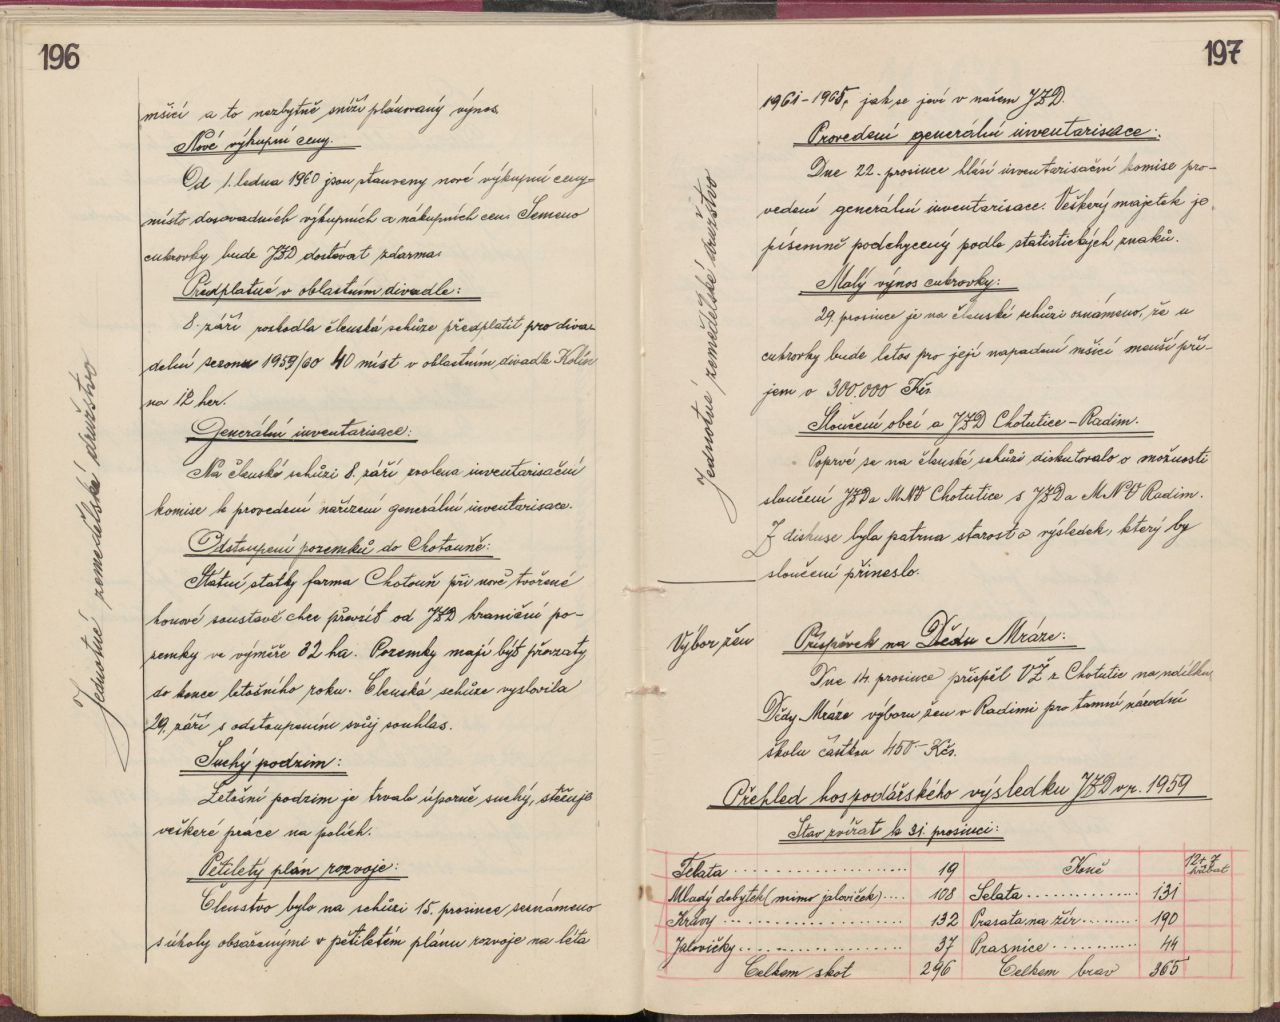 196
Jednotné zemědělské družstvo
mšicí a to nezbytně sníží plánovaný výnos.
Nové výkupní ceny.
Od 1. ledna 1960 jsou stanoveny nové výkupní ceny
místo dosavadních výkupních a nákupních cen. Semeno
cukrovky bude JZD dostávat zdarma.
Předplatné v oblastním divadle:
8. září rozhodla členská schůze předplatit pro diva-
delní sezonu 1959/60 40 míst v oblastním divadle Kolín
na 12 her.
Generální inventarisace:
Na členské schůzi 8. září zvolena inventarisační
komise k provedení nařízení generální inventarisace.
Odstoupení pozemků do Chotouně:
Státní statky farma Chotouň při nově tvořené
honové soustavě chce převzít od JZD hraniční po-
zemky ve výměře 32 ha. Pozemky mají být převzaty
do konce letošního roku. Členská schůze vyslovila
29. září s odstoupením svůj souhlas.
Suchý podzim:
Letošní podzim je trvale úporně suchý, stěžuje
veškeré práce na polích.
Pětiletý plán rozvoje:
Členstvo bylo na schůzi 15. prosince seznámeno
s úkoly obsaženými v pětiletém plánu rozvoje na léta
197
Jednotné zemědělské družstvo
1961-1965, jak se jeví v našem JZD.
Provedení generální inventarisace:
Dne 22. prosince hlásí inventarisační komise pro-
vedení generální inventarisace. Veškerý majetek je
písemně podchycený podle statistických znaků.
Malý výnos cukrovky:
29. prosince je na členské schůzi oznámeno, že u
cukrovky bude letos pro její napadení mšicí menší pří-
jem o 300.000 Kčs.
Sloučení obcí a JZD Chotutice-Radim.
Poprvé se na členské schůzi diskutovalo o možnosti
sloučení JZD a MNV Chotutice s JZD a MNV Radim.
Z diskuse byla patrna starost o výsledek, který by
sloučení přineslo.
Výbor žen
Příspěvek na Dědu Mráze:
Dne 14. prosince přispěl VŽ z Chotutic na nadílku
Dědy Mráze výboru žen v Radimi pro tamní národní
školu částkou 450.- Kčs.
Přehled hospodářského výsledku JZD v r. 1959
Stav zvířat k 31. prosinci:
Telata 19 Koně 12+7 hříbat
Mladý dobytek (mimo jaloviček) 108 Selata 131
Krávy 132 Prasata na žír 190
Jalovičky 37 Prasnice 44
Celkem skot 296 Celkem brav 365